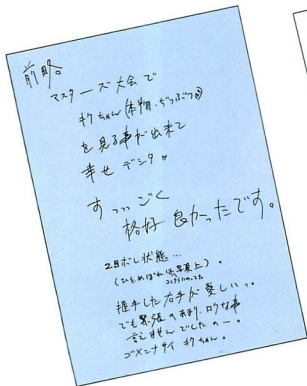 前略。
マスターズ大会で
キクちゃん(本物・ぢつぶつ)
を見る事が出来て
幸せデシタ。
すっっごく
格好良かったです。
2目ぼし状態…
(ひとめぼれは写真上)。
握手した右手が愛しいっ。
でも緊張のあまり、ロクな事
言えませんでしたのー。
ゴメンナサイ キクちゃん。